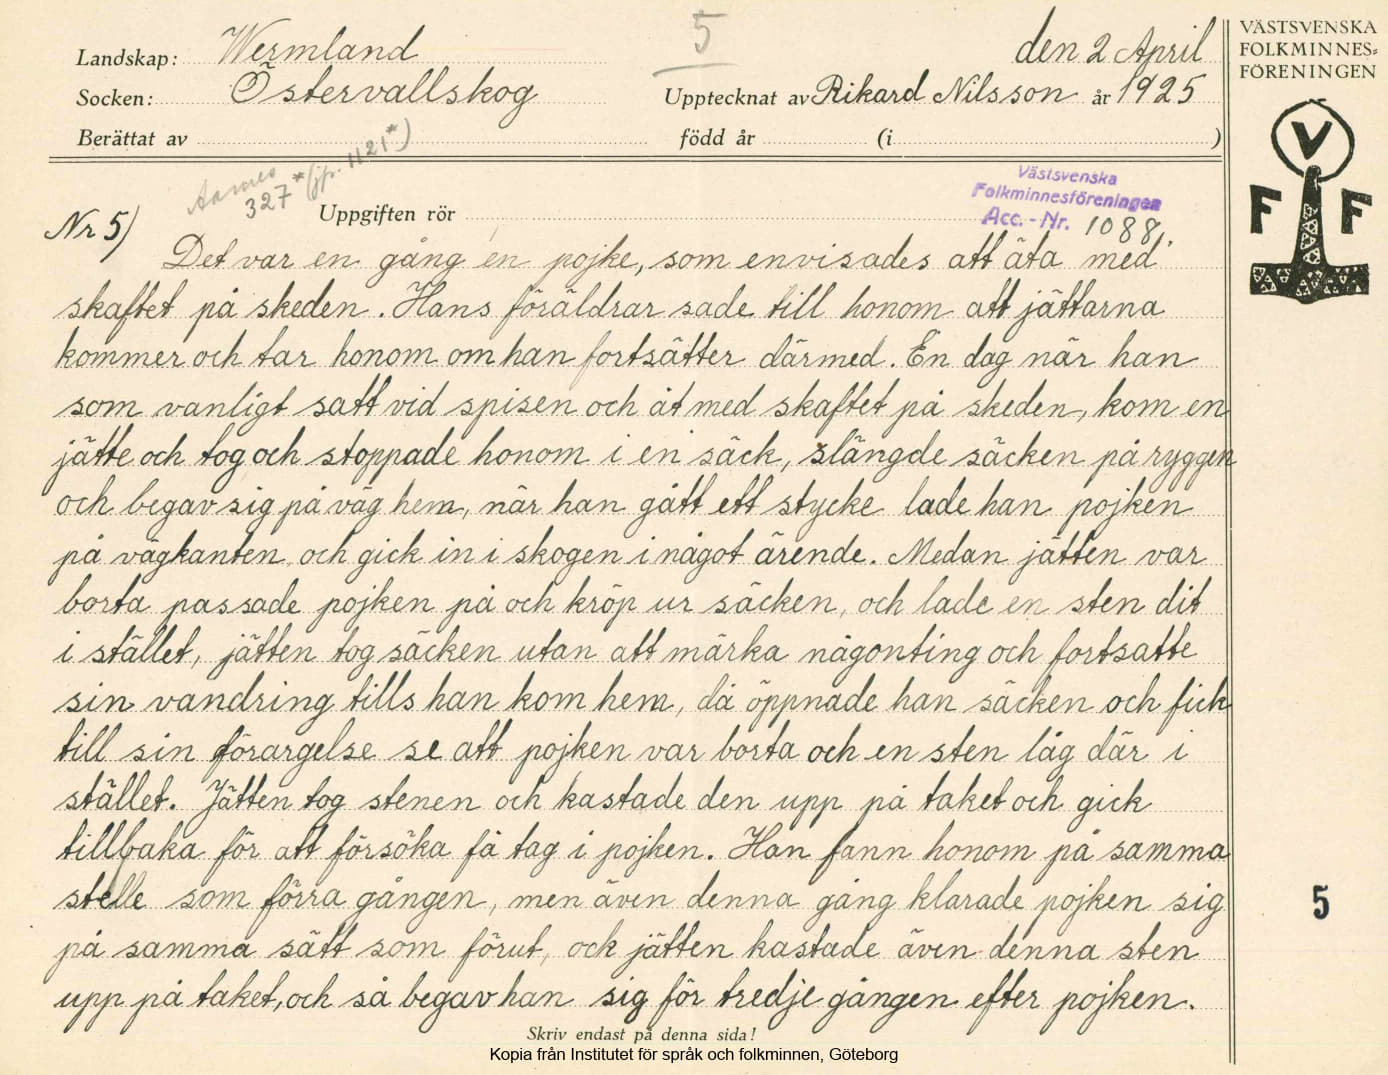 5
Landskap: Wermland
den 2 April
Socken: Östervallskog
Upptecknat av Rikard Nilsson år 1925
Berättat av
född år (i )
VÄSTSVENSKA
FOLKMINNES-
FÖRENINGEN
V
F F
Aarnes
327* (jfr. 1121*)
Västsvenska
Folkminnesföreningen
Acc.-Nr. 1088.
Nr 5)
Uppgiften rör
Det var en gång en pojke, som envisades att äta med
skaftet på skeden. Hans föräldrar sade till honom att jättarna
kommer och tar honom om han fortsätter därmed. En dag när han
som vanligt satt vid spisen och åt med skaftet på skeden, kom en
jätte och tog och stoppade honom i en säck, slängde säcken på ryggen
och begav sig på väg hem, när han gått ett stycke lade han pojken
på vägkanten och gick in i skogen i något ärende. Medan jätten var
borta passade pojken på och kröp ur säcken, och lade en sten dit
i stället, jätten tog säcken utan att märka någonting och fortsatte
sin vandring tills han kom hem, då öppnade han säcken och fick
till sin förargelse se att pojken var borta och en sten låg där i
stället. Jätten tog stenen och kastade den upp på taket och gick
tillbaka för att försöka få tag i pojken. Han fann honom på samma
stelle som förra gången, men även denna gång klarade pojken sig
på samma sätt som förut, och jätten kastade även denna sten
upp på taket, och så begav han sig för tredje gången efter pojken.
5
Skriv endast på denna sida!
Kopia från Institutet för språk och folkminnen, Göteborg